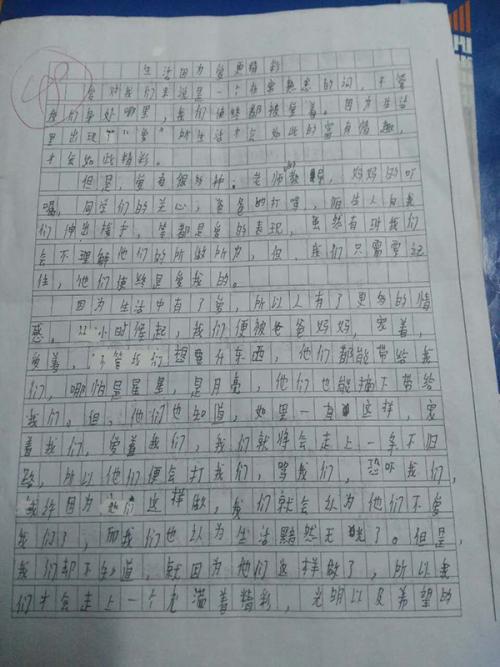 48
生活因为爱更精彩
爱对我们来说是一个在熟悉的词，不管
我们身处哪里，我们使终都被爱着。因为生活
里出现了"爱"所生活才会如此的富有情趣，
才会如此精彩。
但是，爱有很多种：老师的教，妈妈的叮
嘱，同学们的关心，爸爸的打骂，陌生人向我
们伸出援手，等都是爱的表现，虽然有时我们
会不理解他们的所做所为，但，我们只需要记
住，他们使终是爱我的。
因为生活中有了爱，所以人有了更多的情
感。从小时候起，我们便被爸爸妈妈，宠着，
爱着，不管我们想要什东西，他们都能带给我
们，哪怕是星星，是月亮，他们也能摘下带给
我们。但，他们也知道，如里一直这样，宠
着我们，爱着我们，我们就将会走上一条不归
路，所以他们便会打我们，骂我们，恐吓我们，
因为他们这样做，我们就会以为他们不爱
我们了，而我们也以为生活黯然无光了。但是，
我们却不知道，就因为他们这样做了，所以我
们才会走上一个充满着精彩，光明以及希望的